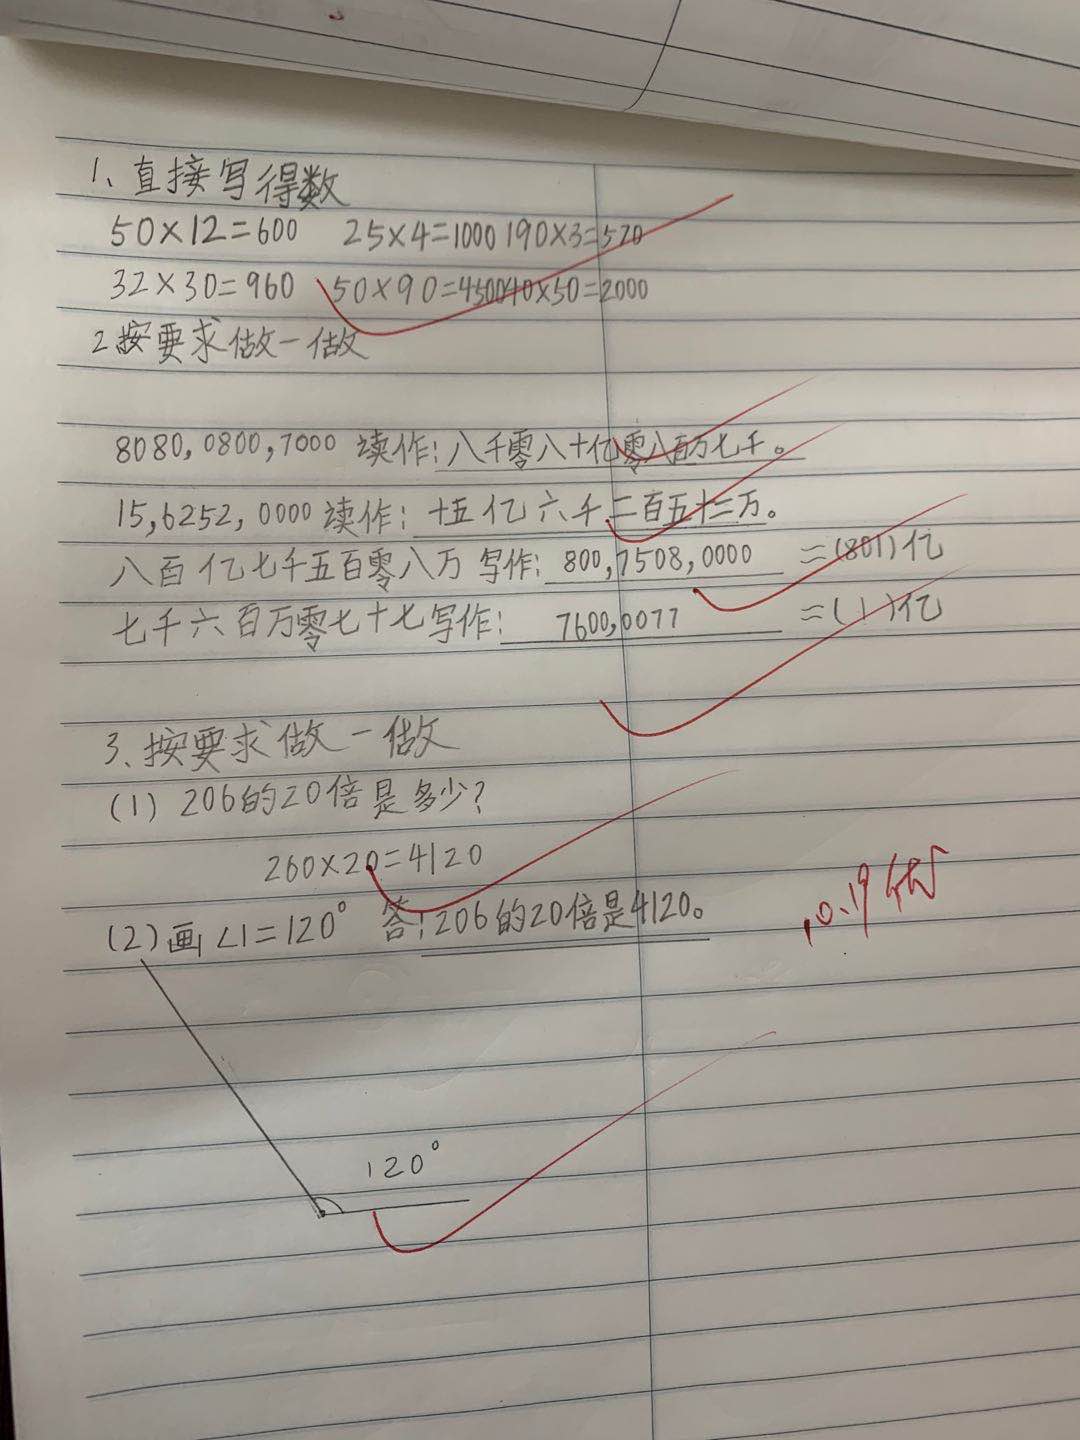 1、直接写得数
50×12=600 25×4=1000 190×3=570
32×30=960 50×90=4500 40×50=2000
2按要求做一做
8080,0800,7000 读作:八千零八十亿零八百万七千。
15,6252,0000 读作:十五亿六千二百五十二万。
八百亿七千五百零八万 写作:800,7508,0000 ≈(801)亿
七千六百万零七十七写作:7600,0077 ≈(1)亿
3、按要求做一做
(1) 206的20倍是多少?
260×20=4120
(2)画∠1=120° 答:206的20倍是4120。
10.19 优
120°